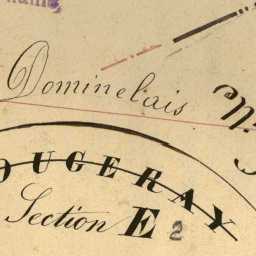 Dominelais
OUGERAY
Section E 2